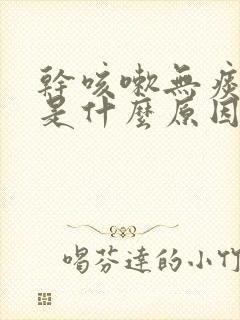 幹咳嗽無痰
是什麼原因
喝芬達的小竹